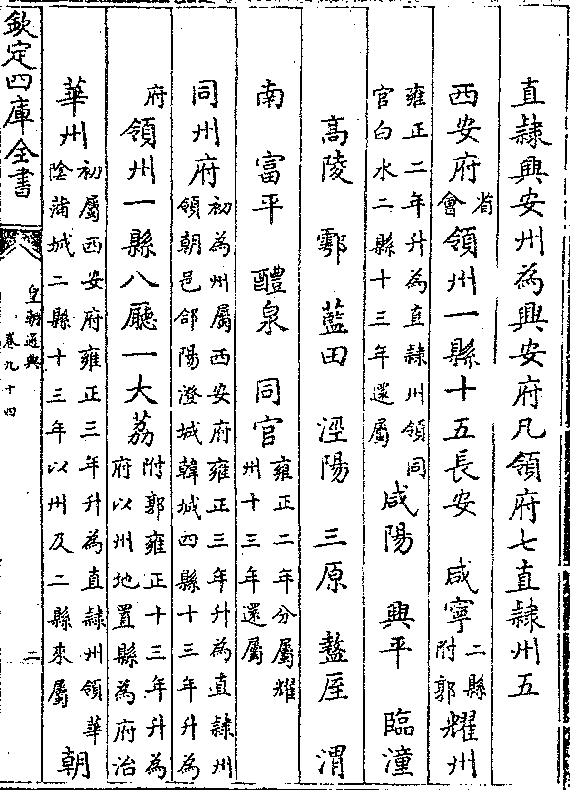 直隸興安州為興安府凡領府七直隸州五
西安府省會領州一縣十五長安 咸寧二縣附郭耀州
雍正二年升為直隸州領同官白水二縣十三年還屬咸陽 興平 臨潼
高陵 鄠 藍田 涇陽 三原 盩厔 渭
南 富平 醴泉 同官雍正二年分屬耀州十三年還屬
同州府初為州屬西安府雍正三年升為直隸州領朝邑郃陽澄城韓城四縣十三年升為
府領州一縣八廳一大荔附郭雍正十三年升為府以州地置縣為府治
華州初屬西安府雍正三年升為直隸州領華陰蒲城二縣十三年以州及二縣來屬 朝
欽定四庫全書
皇朝通典
卷九十四
二